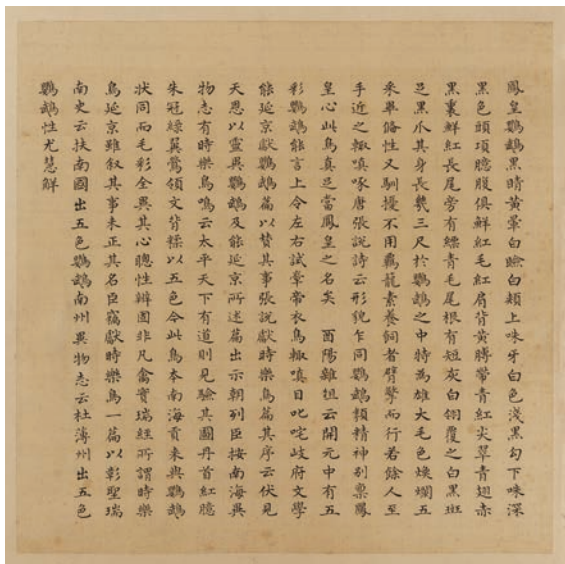 鳳皇鸚鵡黑睛黃暈白瞼白頰上咮牙白色淺黑勾下咮深
黑色頭項臆腹俱鮮紅毛紅肩背黃膊帶青紅尖翠青翅赤
黑裏鮮紅長尾旁有縹青毛尾根有短灰白翎覆之白黑斑
足黑爪其身長幾三尺於鸚鵡之中特為雄大毛色煥爛五
采畢備性又馴擾不用羈籠素養飼者臂擎而行若餘人至
手近之輒嗔啄唐張說詩云形貌乍同鸚鵡類精神別稟鳳
皇心此鳥真足當鳳皇之名矣 酉陽雜俎云開元中有五
彩鸚鵡能言上令左右試牽帝衣鳥輒嗔目叱咤岐府文學
能延京獻鸚鵡篇以贊其事張說獻時樂鳥篇其序云伏見
天恩以靈異鸚鵡及能延京所述篇出示朝列臣按南海異
物志有時樂鳥鳴云太平天下有道則見驗其圖丹首紅臆
朱冠綠翼鶯領文背糅以五色今此鳥本南海貢來與鸚鵡
狀同而毛彩全異其心聰性辯固非凡禽實瑞經所謂時樂
鳥延京雖敘其事未正其名臣竊獻時樂鳥一篇以彰聖瑞
南史云扶南國出五色鸚鵡南州異物志云杜薄州出五色
鸚鵡性尤慧解